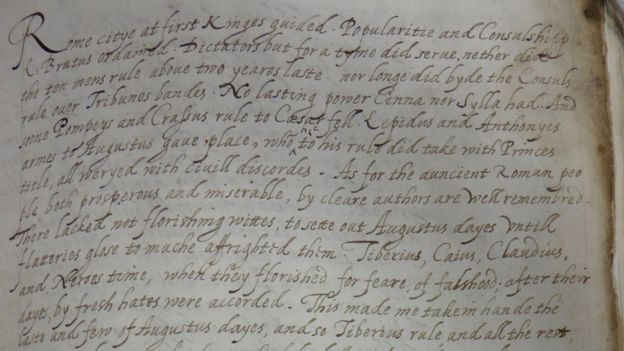 Rome citye at first Kinges guided. Popularitie and Consulshipp
L. Brutus ordained. Dictators but for a tyme did serve, nether did
the ten mens rule above two yeares laste. nor longe did byde the Consuls
rule over Tribunes bandes. No lasting power Cinna nor Sylla had. And
soone Pompeys and Crassus rule to Cæsar fell. Lepidus and Anthonyes
armes to Augustus gave place, who to his rule did take with Princes
title, all weryed with civill discordes. As for the auncient Roman peo
ple both prosperous and miserable, by cleare authors are well remembred.
There lacked not florishing wittes, to sette out Augustus dayes vntill
flatteries glose to muche affrighted them. Tiberius, Caius, Claudius,
and Neroes teme, when they florished for feare, of falshood; after their
dayes, by fresh hates were accorded. This made me take in hande the
laste and few of Augustus dayes, and so Tiberius rule and all the rest,